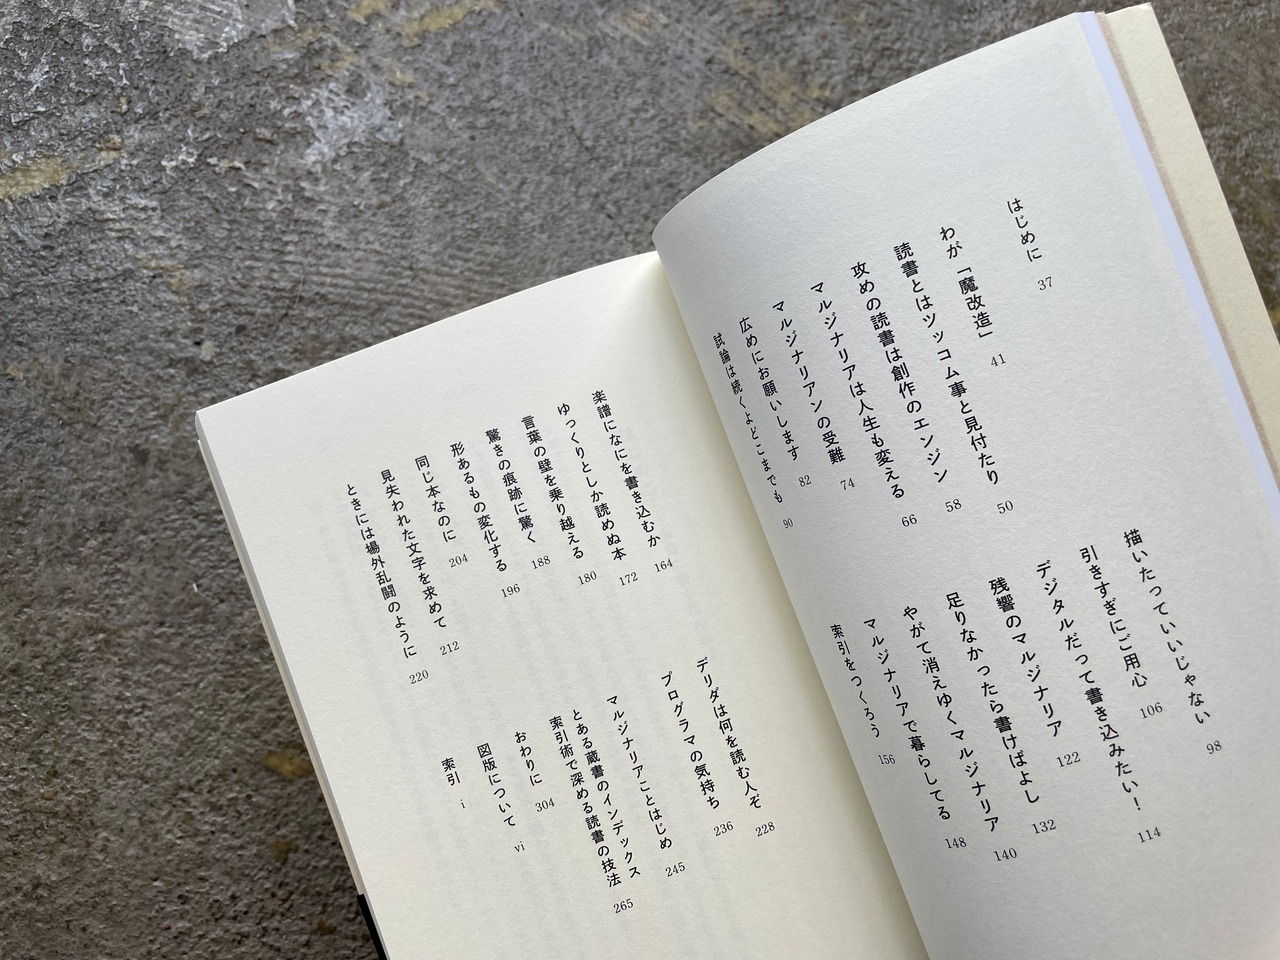 はじめに 37
わが「魔改造」 41
読書とはツッコム事と見付たり 50
攻めの読書は創作のエンジン 58
マルジナリアは人生も変える 66
マルジナリアンの受難 74
広めにお願いします 82
試論は続くよどこまでも 90
描いたっていいじゃない 98
引きすぎにご用心 106
デジタルだって書き込みたい! 114
残響のマルジナリア 122
足りなかったら書けばよし 132
やがて消えゆくマルジナリア 140
マルジナリアで暮らしてる 148
索引をつくろう 156
楽譜になにを書き込むか 164
ゆっくりとしか読めぬ本 172
言葉の壁を乗り越える 180
驚きの痕跡に驚く 188
形あるもの変化する 196
同じ本なのに 204
見失われた文字を求めて 212
ときには場外乱闘のように 220
デリダは何を読む人ぞ 228
プログラマの気持ち 236
マルジナリアことはじめ 245
とある蔵書のインデックス
索引術で深める読書の技法 265
おわりに 304
図版について vi
索引 i